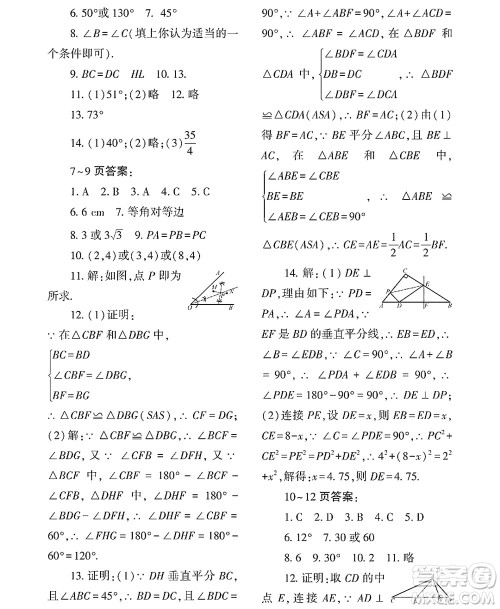 6. 50°或130° 7. 45°
8. ∠B=∠C(填上你认为适当的一
个条件即可).
9. BC=DC HL 10. 13.
11. (1)51°;(2)略 12. 略
13. 73°
14. (1)40°;(2)略;(3)35/4
7~9 页答案:
1. A 2. B 3. C 4. A 5. B
6. 6 cm 7. 等角对等边
8. 3 或 3√3 9. PA=PB=PC
10. (2,4)或(3,4)或(8,4)
11. 解:如图,点 P 即为
所求.
12. (1)证明:
∵ 在△CBF 和△DBG 中,
BC=BD
∠CBF=∠DBG,
BF=BG
∴ △CBF≌△DBG(SAS),∴ CF=DG;
(2)解:∵ △CBF≌△DBG,∴ ∠BCF=
∠BDG,又∵ ∠CFB=∠DFH,又∵
△BCF 中,∠CBF=180°-∠BCF-
∠CFB,△DHF 中,∠DHF=180°-
∠BDG-∠DFH,∴ ∠DHF=∠CBF=
60°,∴ ∠FHG=180°-∠DHF=180°-
60°=120°.
13. 证明:(1)∵ DH 垂直平分
90°,∵ ∠A+∠ABF=90°,∠A+∠ACD=
90°,∴ ∠ABF=∠ACD,在△BDF 和
△CDA 中,
∠BDF=∠CDA
DB=DC
∠DBF=∠DCA
∴ △BDF
≌△CDA(ASA),∴ BF=AC;(2)由(1)
得 BF=AC,∵ BE 平分∠ABC,且 BE⊥
AC, 在△ABE 和△CBE 中,
∠ABE=∠CBE
BE=BE
∠AEB=∠CEB=90°
, ∴ △ABE ≌
△CBE(ASA),∴ CE=AE=1/2AC=1/2BF.
14. 解:(1)DE⊥
DP,理由如下:∵ PD=
PA,∴ ∠A=∠PDA,∵
EF 是 BD 的垂直平分线,∴ EB=ED,∴
∠B=∠EDB,∵ ∠C=90°,∴ ∠A+∠B
=90°,∴ ∠PDA+∠EDB=90°,∴
∠PDE=180°-90°=90°,∴ DE⊥DP;
(2)连接 PE,设 DE=x,则 EB=ED=x,
CE=8-x,∵ ∠C=∠PDE=90°,∴ PC²+
CE²=PE²=PD²+DE²,∴ 4²+(8-x)²=2²
+x²,解得:x=4.75,则 DE=4.75.
10~12 页答案:
1. C 2. B 3. D 4. C 5. D
6. 12° 7. 30 或 60
8. 6 9. 30° 10. 2 11. 略
12. 证明:取 CD 的中
点 E,连接 AE,∵ AD⊥